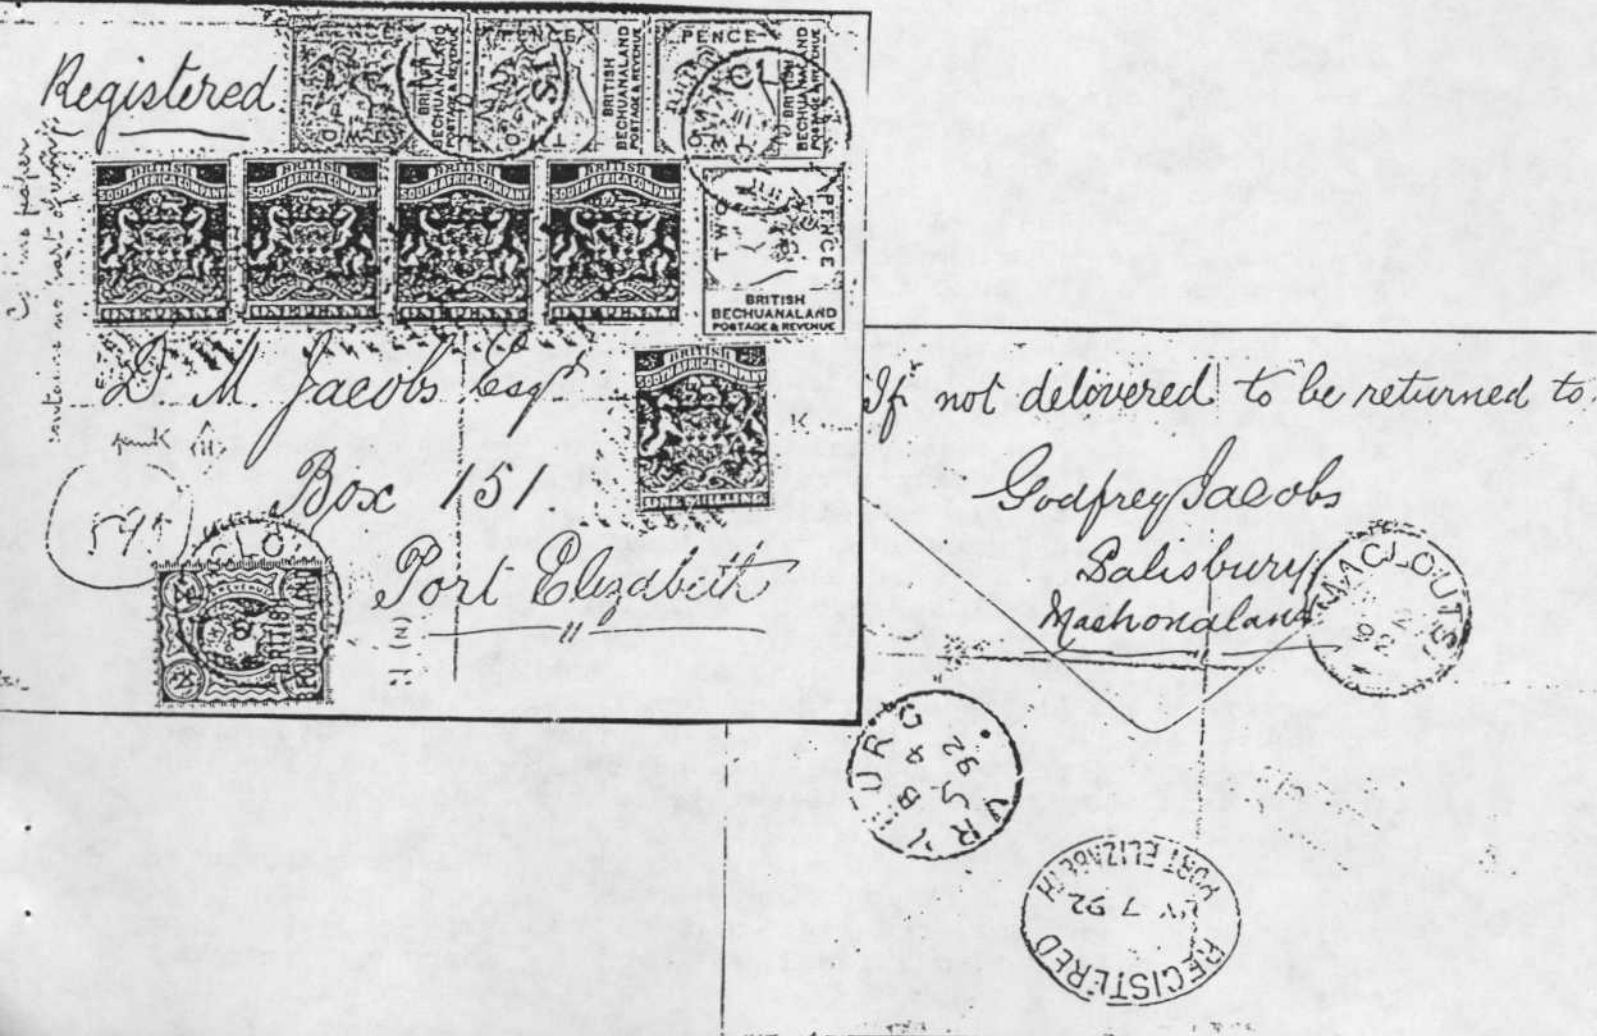 Registered
PENCE
PENCE
BRITISH
BECHUANALAND
POSTAGE & REVENUE
BRITISH
BECHUANALAND
POSTAGE & REVENUE
BRITISH
BECHUANALAND
POSTAGE & REVENUE
TS
BRITISH
SOUTH AFRICA COMPANY
ONE PENNY
BRITISH
SOUTH AFRICA COMPANY
ONE PENNY
BRITISH
SOUTH AFRICA COMPANY
ONE PENNY
BRITISH
SOUTH AFRICA COMPANY
ONE PENNY
TWO PENCE
BRITISH
BECHUANALAND
POSTAGE & REVENUE
contains no part of gum
BRITISH
SOUTH AFRICA COMPANY
ONE SHILLING
D. M. Jacobs Esqr
Box 151.
Port Elizabeth
CLO
BRITISH
BECHUANALAND
If not delivered to be returned to
Godfrey Jacobs
Salisbury
Mashonaland
MACLOUTSI
VRYBURG
5
92
REGISTERED
MY 7 92
PORT ELIZABETH